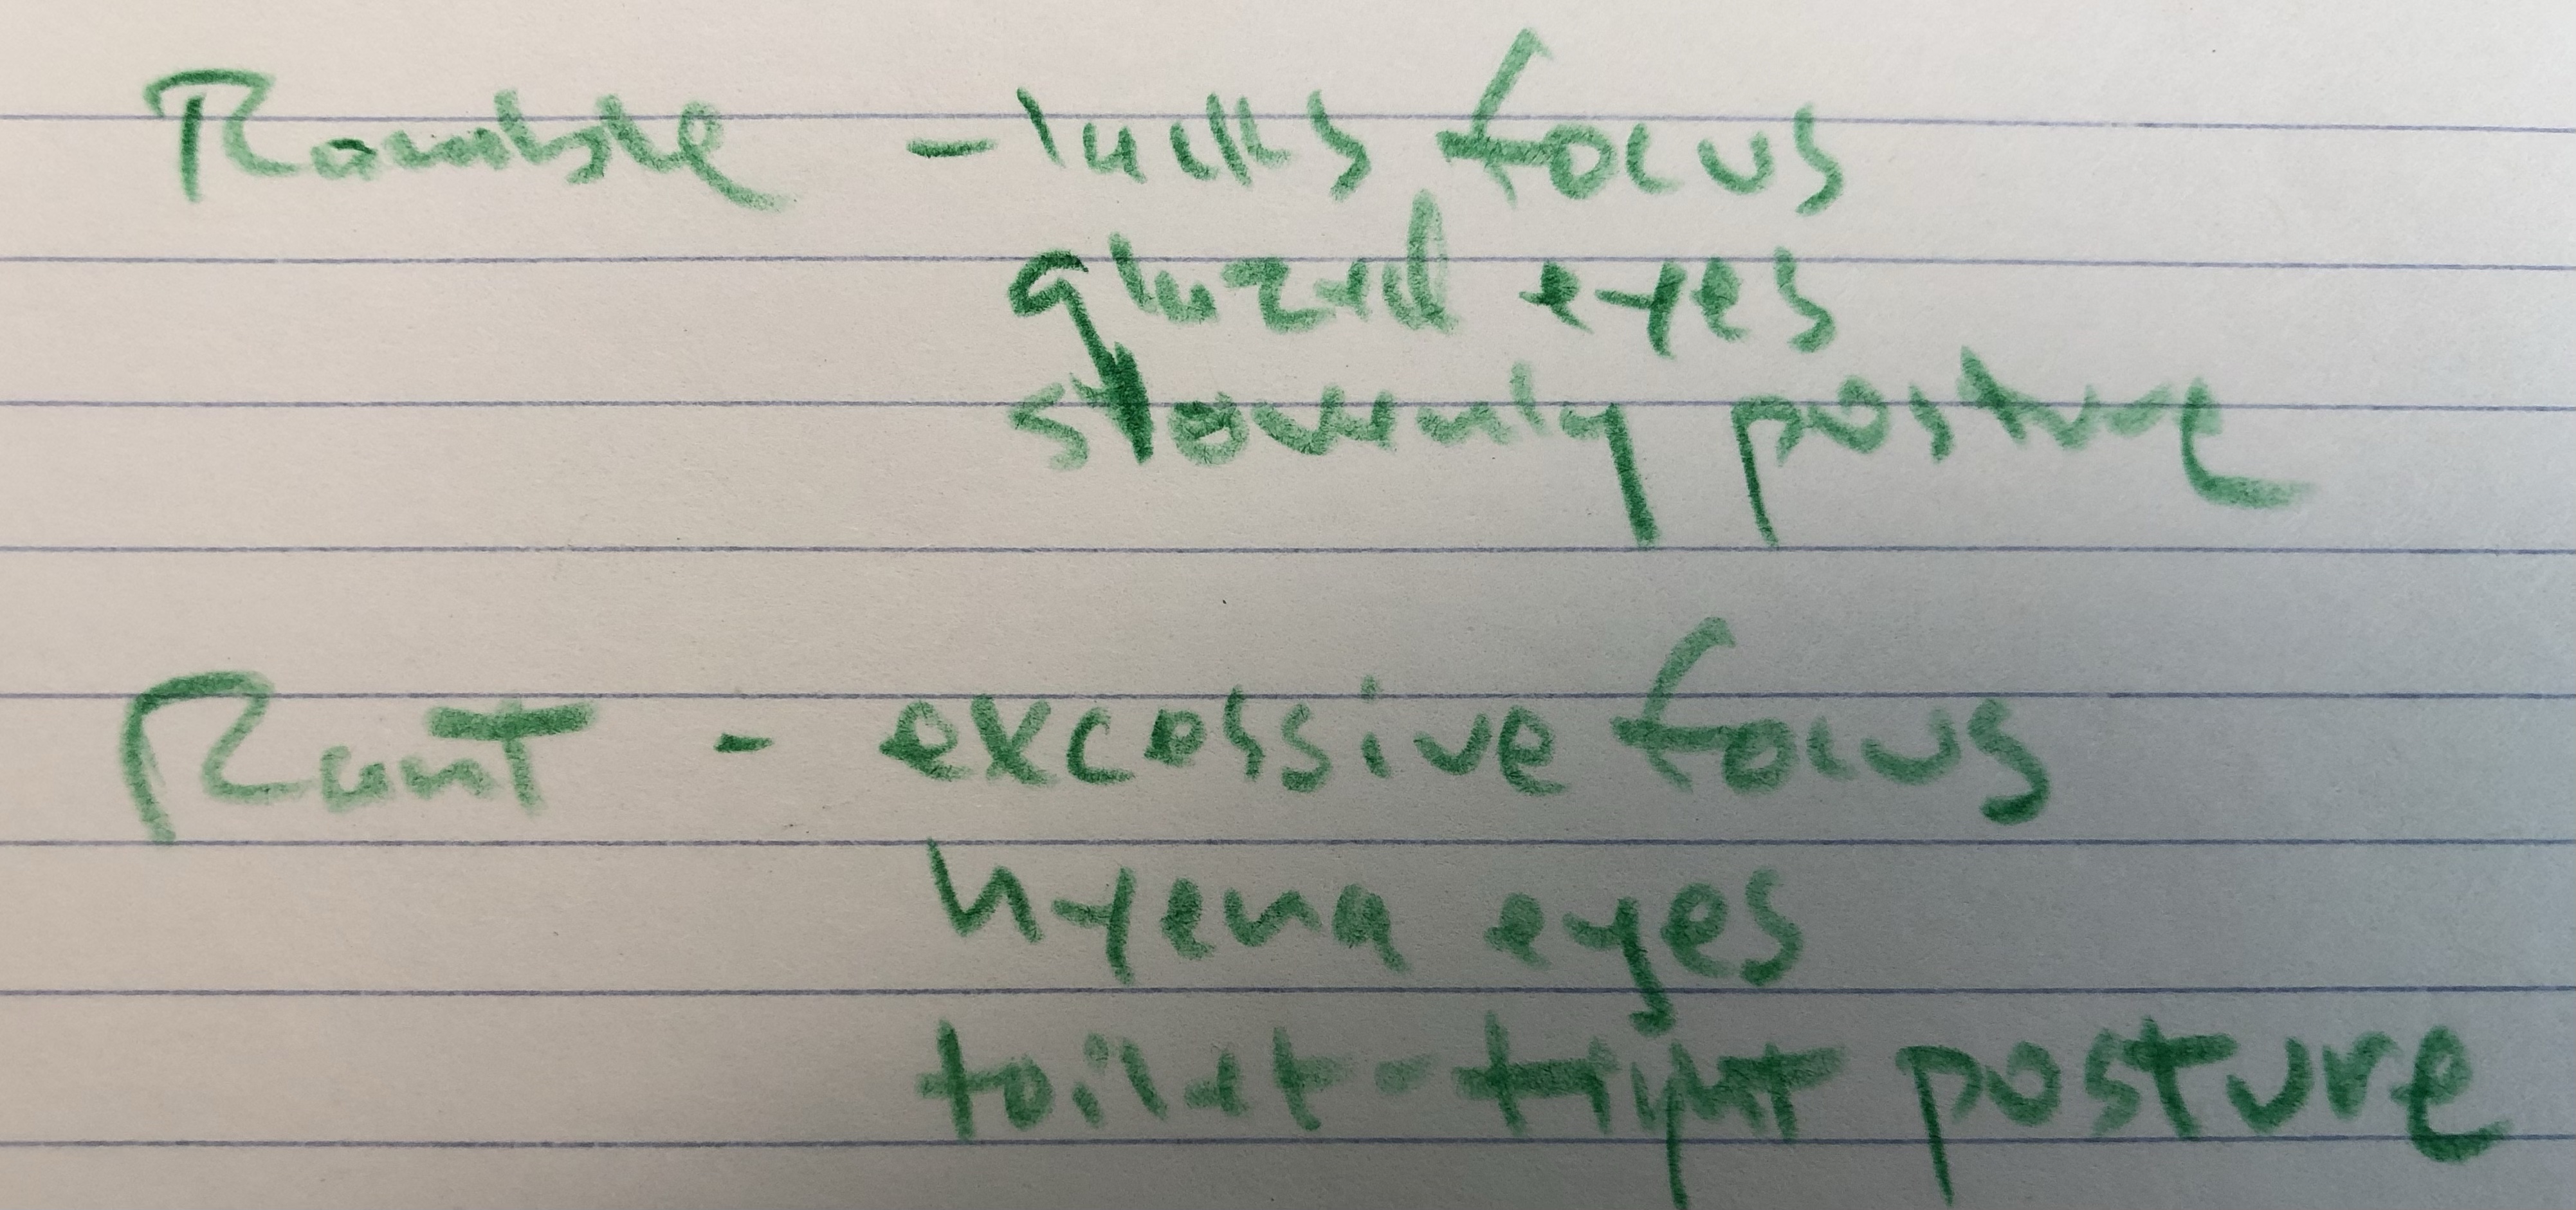 Ramble - lacks focus
glazed eyes
slovenly posture
Rant - excessive focus
hyena eyes
toilet-tight posture